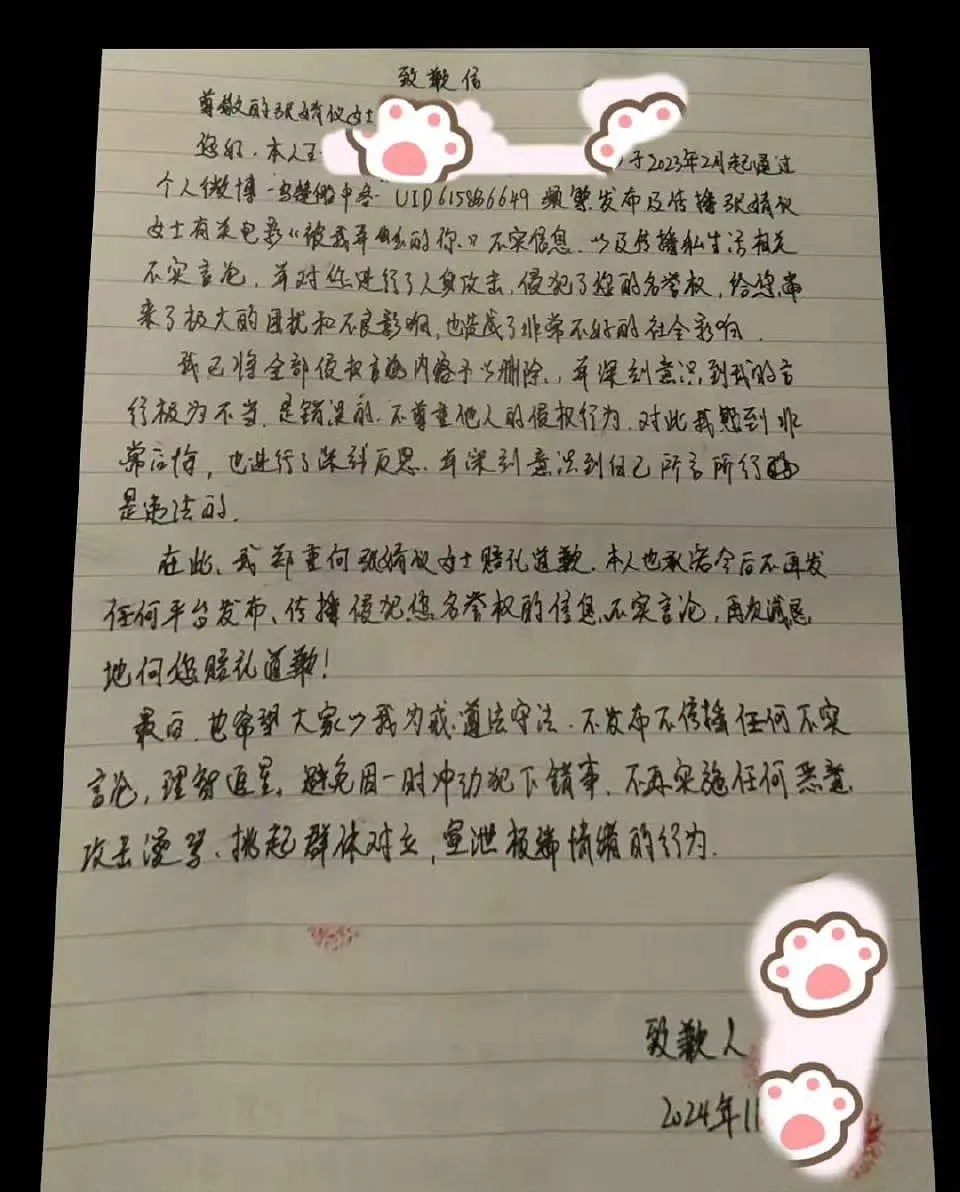 致歉信
尊敬的张婧仪女士
您好，本人王 于2023年2月起通过
个人微博 UID615866649 频繁发布及传播张婧仪
女士有关电影《被我弄丢的你》不实信息，以及传播私生活有关
不实言论，并对您进行了人身攻击，侵犯了您的名誉权，给您带
来了极大的困扰和不良影响，也造成了非常不好的社会影响．
我已将全部侵权言论内容予以删除，并深刻意识到我的言
行极为不当，是错误的，不尊重他人的侵权行为，对此我感到非
常后悔，也进行了深刻反思，并深刻意识到自己所言所行
是违法的．
在此，我郑重向张婧仪女士赔礼道歉，本人也承诺今后不再发
任何平台发布、传播侵犯您名誉权的信息、不实言论，再次诚恳
地向您赔礼道歉！
最后，也希望大家以我为戒，遵法守法，不发布不传播任何不实
言论，理智追星，避免因一时冲动犯下错事，不再实施任何恶意
攻击谩骂、挑起群体对立，宣泄极端情绪的行为．
致歉人
2024年11